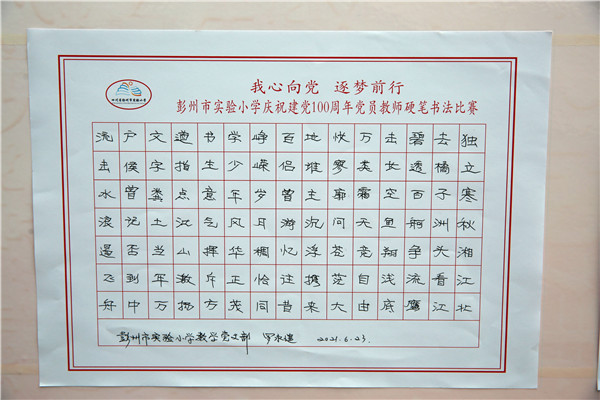 我心向党 逐梦前行
彭州市实验小学庆祝建党100周年党员教师硬笔书法比赛
独立寒秋湘江北
去橘子洲头看江
碧透百舸争流鹰
击长空鱼翔浅底
万类霜天竞自由
怅寥廓问苍茫大
地谁主沉浮携来
百侣曾游忆往昔
峥嵘岁月稠恰同
学少年风华正茂
书生意气挥斥方
遒指点江山激扬
文字粪土当年万
户侯曾记否到中
流击水浪遏飞舟
彭州市实验小学教学党支部 2021.6.23